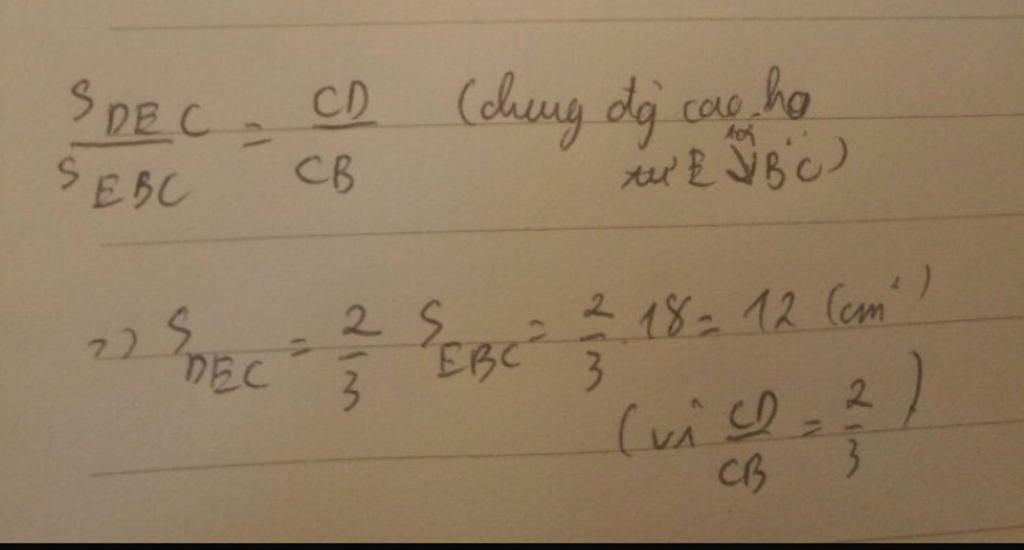 S_DEC / S_EBC = CD / CB (chung đg cao hạ
từ E tới BC)
=> S_DEC = 2/3 S_EBC = 2/3 . 18 = 12 (cm²)
(vì CD/CB = 2/3)